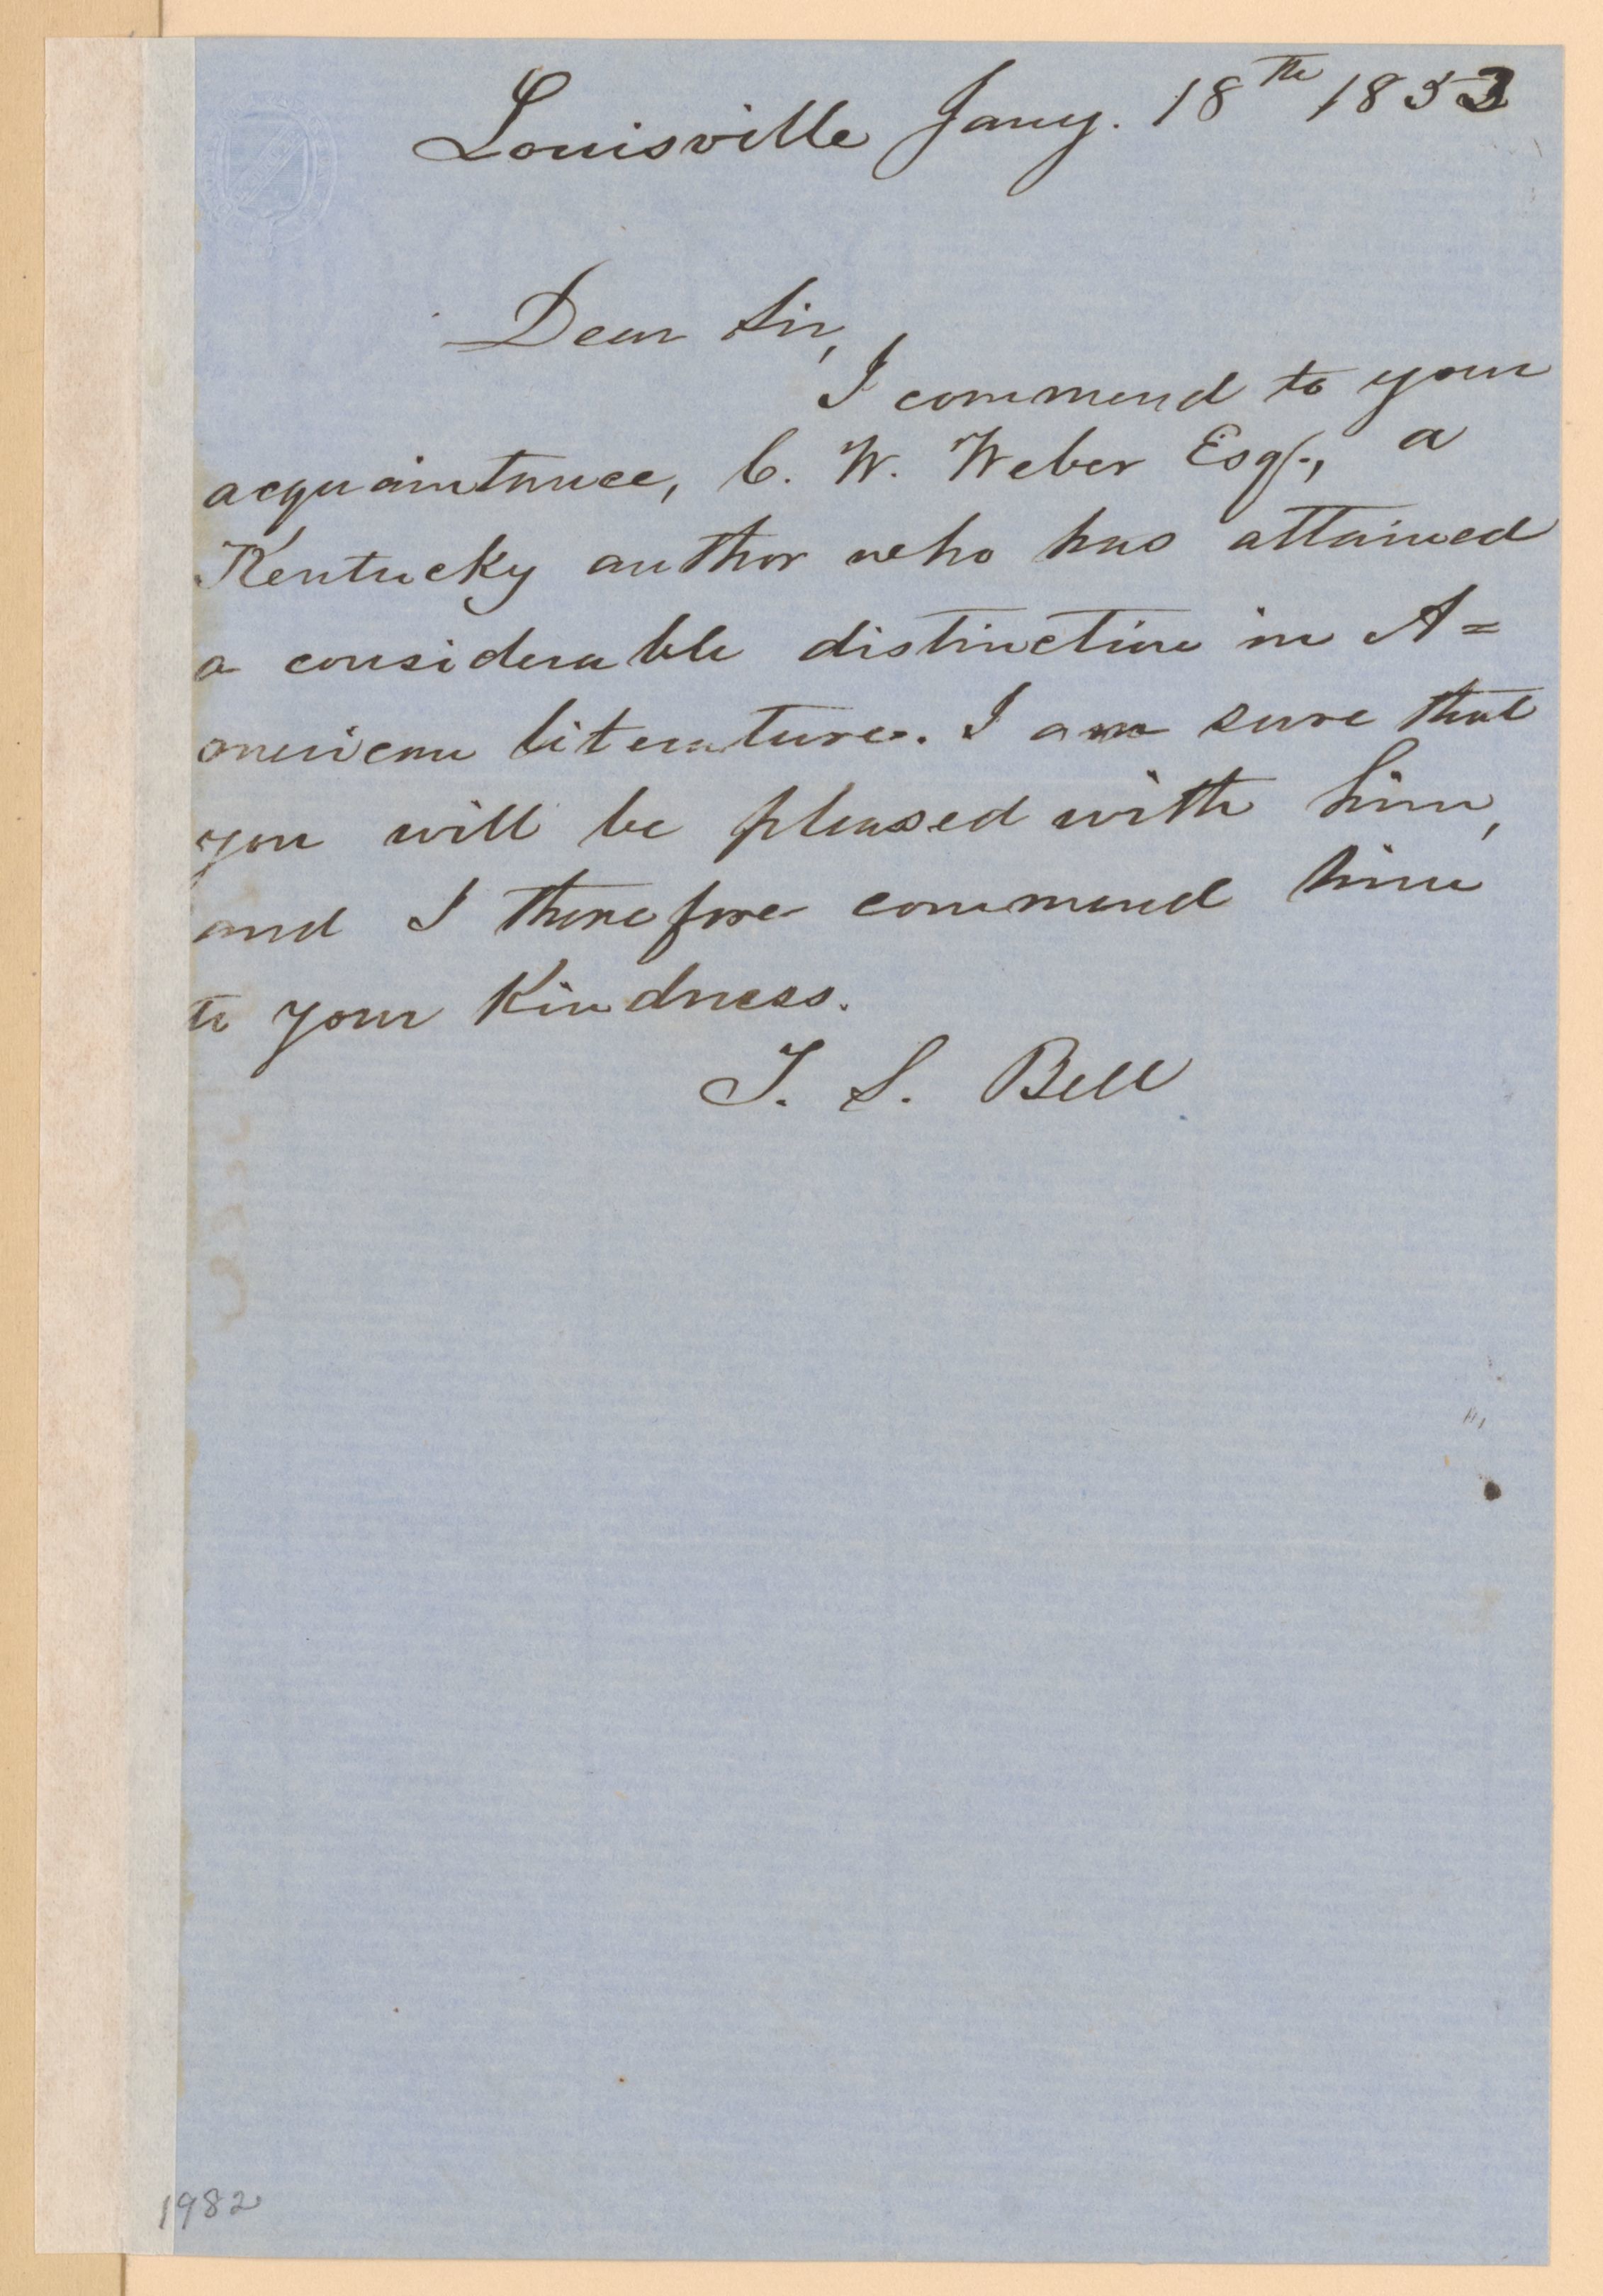 Louisville Jany. 18th 1853
Dear Sir,
I commend to your
acquaintance, C. W. Weber Esq., a
Kentucky author who has attained
a considerable distinction in A=
merican literature. I am sure that
you will be pleased with him,
and I therefore commend him
to your kindness.
T. S. Bell
1982